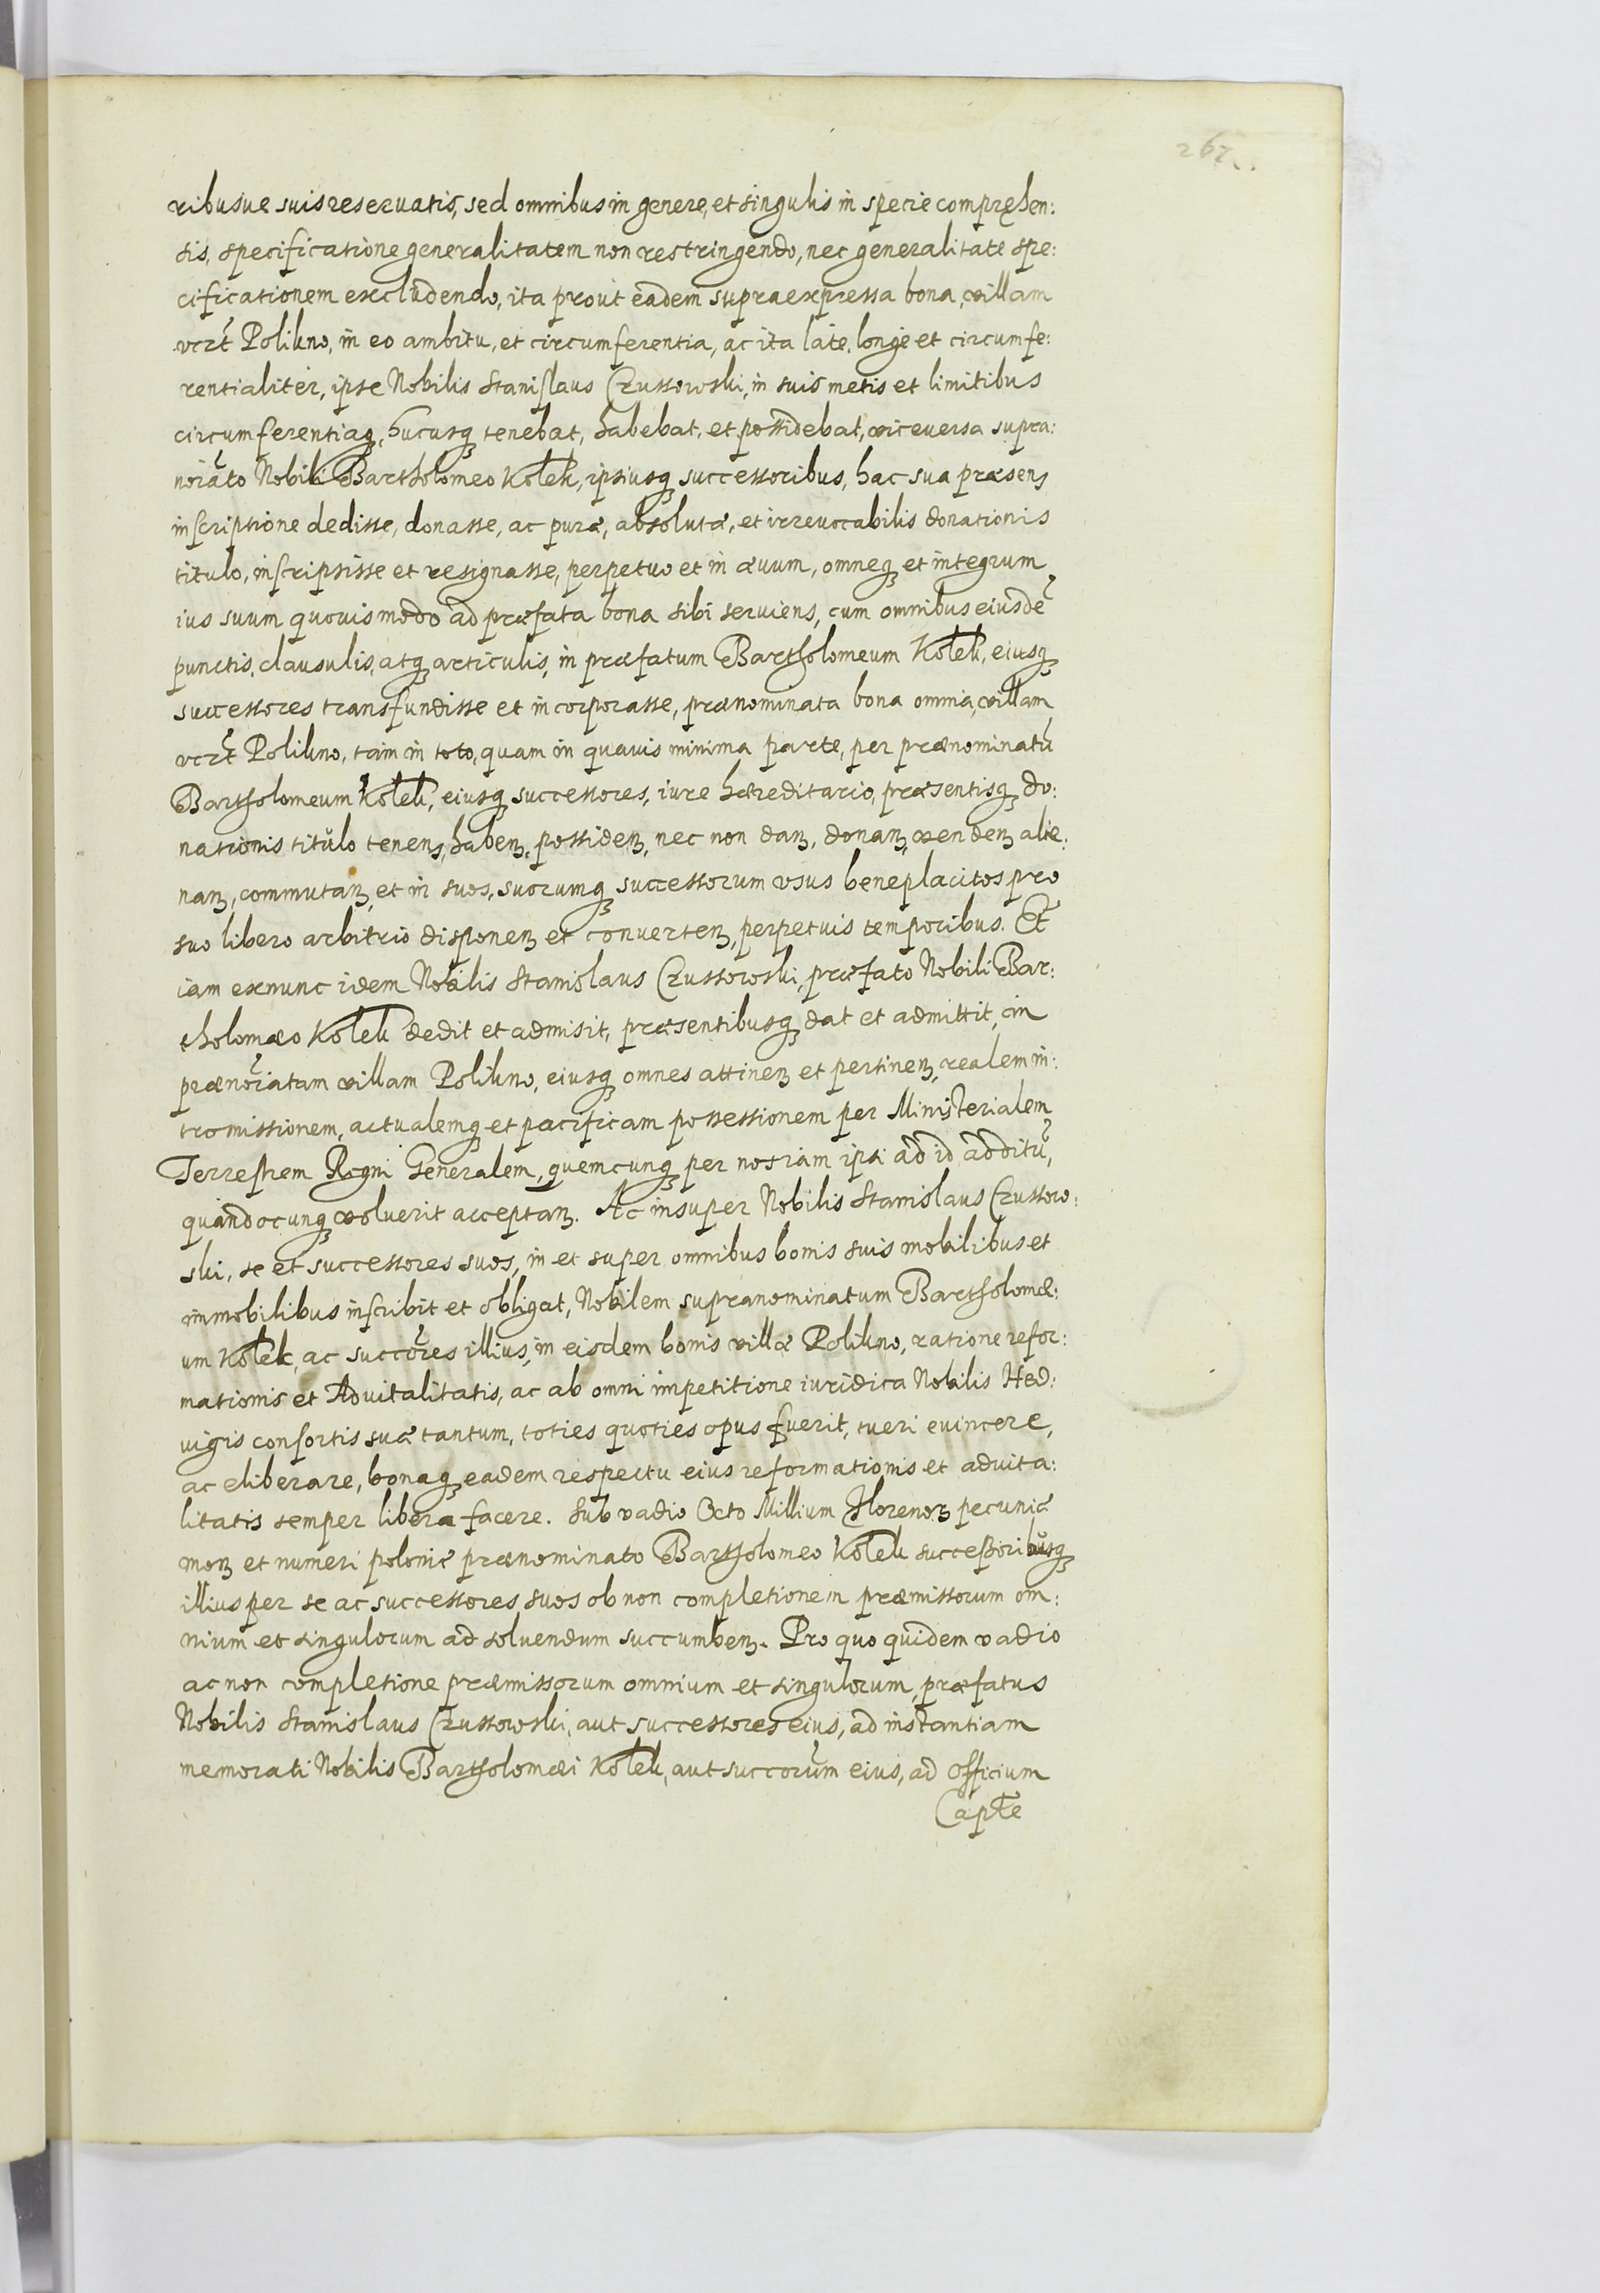 267.
ribusue suis reseruatis, sed omnibus in genere, et singulis in specie compręhen:
sis, specificatione generalitatem non restringendo, nec generalitate spe:
cificationem excludendo, ita prout eadem supraexpressa bona, villam
vczt̃ Polikno, in eo ambitu, et circumferentia, ac ita late, longè et circumfe:
rentialiter, ipse Nobilis Stanislaus Czussowski, in suis metis et limitibus
circumferentiaq́ȝ, hucusq́ȝ tenebat, habebat, et possidebat, viceuersa supra:
noĩato Nobili Bartholomeo Kołek, ipsiusqȝ successoribus, hac sua præsenȝ
inscriptione dedisse, donasse, ac puræ, absolutæ, et irreuocabilis donationis
titulo, inscripsisse et resignasse, perpetuo et in æuum, omneqȝ et integrum
ius suum quouismodo ad præfata bona sibi seruiens, cum omnibus eiusdẽ
punctis, clausulis, atqȝ articulis, in præfatum Bartholomeum Kołek, eiusqȝ
successores transfundisse et incorporasse, prænominata bona omnia, villam
vczt̃ Polikno, tam in toto, quam in quauis minima parte, per prænominatũ
Bartholomeum Kołek, eiusqȝ successores, iure hæreditario, præsentisqȝ do:
nationis titŭlo tenenȝ, habenȝ, possidenȝ, nec non danȝ, donanȝ, vendenȝ alie:
nanȝ, commutanȝ, et in suos, suorumqȝ successorum vsus beneplacitos pro
suo libero arbitrio disponenȝ et conuertenȝ, perpetuis temporibus. Et
iam exnunc idem Nobilis Stanislaus Czussowski, præfato Nobili Bar:
tholomæo Kołek dedit et admisit, præsentibusqȝ dat et admittit, in
prænoĩatam villam Polikno, eiusqȝ omnes attinenȝ et pertinenȝ, realem in:
tromissionem, actualemqȝ et pacificam possessionem per Ministerialem
Terrestrem Regni Generalem, quemcunqȝ per nos iam ipsi ad id additũ,
quandocunqȝ voluerit acceptanȝ. Ac insuper Nobilis Stanislaus Czussow:
ski, se et successores suos, in et super omnibus bonis suis mobilibus et
immobilibus inscribit et obligat, Nobilem supranominatum Bartholomæ:
um Kołek, ac succõres illius, in eisdem bonis villæ Polikno, ratione refor:
mationis et Aduitalitatis, ac ab omni impetitione iuridica Nobilis Hed:
uigis consortis suæ tantum, toties quoties opus fuerit, tueri euincere,
ac eliberare, bonaqȝ eadem respectu eius reformationis et aduita:
litatis semper libera facere. Sub vadio Octo Millium Florenoȝ pecuniæ
monȝ et numeri poloniĉ prænominato Bartholomeo Kołek successoribŭsqȝ
illius per se ac successores suos ob non completionem præmissorum om:
nium et singulorum ad soluendum succumbenȝ. Pro quo quidem vadio
ac non completione præmissorum omnium et singulorum, præfatus
Nobilis Stanislaus Czussowski, aut successores eius, ad instantiam
memorati Nobilis Bartholomæi Kołek, aut succorũm eius, ad Officium
Capt̃e